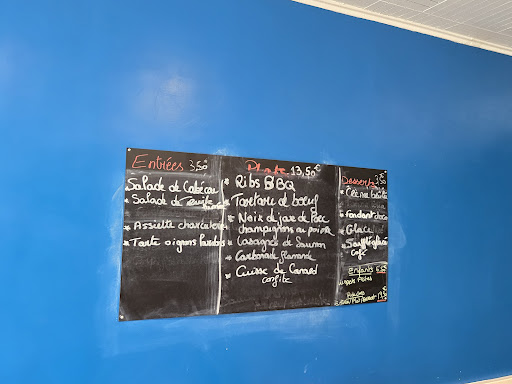 Entrées 3,50
Salade de Cabécou
Salade de
Assiette charcuterie
Tarte oignons
Plats 13,50 €
* Ribs BBQ
* Tartare de boeuf
* Noix de joue de Porc
champignons au poivre
* Lasagnes de Saumon
* Carbonade flamande
* Cuisse de Canard
confite
Desserts 3,50
* Crème brulée
* fondant choco
* Glace
* Soufflé glacé
café
enfants